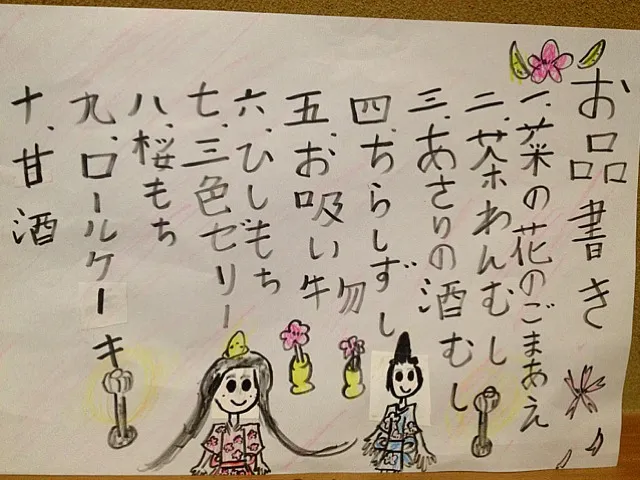 お品書き
一.菜の花のごまあえ
二.茶わんむし
三.あさりの酒むし
四.ちらしずし
五.お吸い物
六.ひしもち
七.三色ゼリー
八.桜もち
九.ロールケーキ
十.甘酒